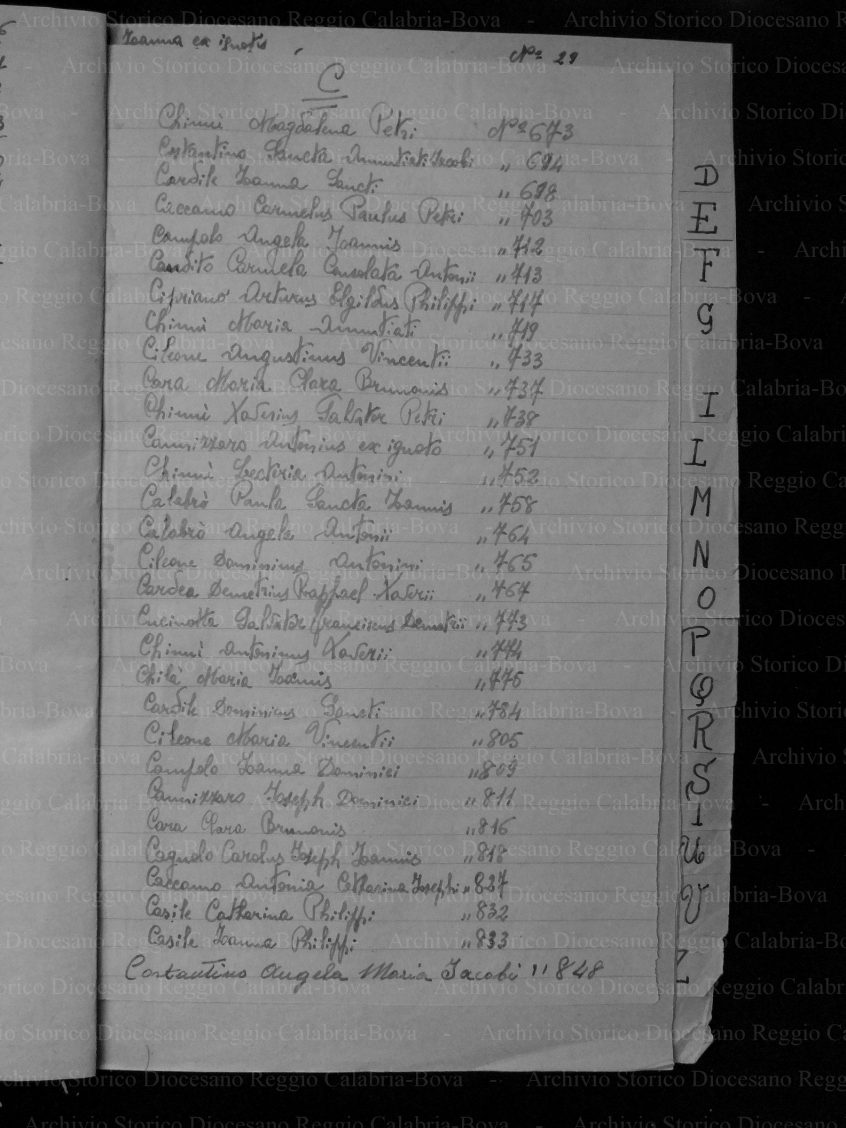 Joanna ex ignotis Nº 29
C
Chinnì Magdalena Petri Nº 673
Costantino Sancta Annuntiata Jacobi " 694
Cardile Joanna Sancti " 698
Caccamo Carmelus Paulus Petri " 703
Campolo Angela Joannis " 712
Candito Carmela Consolata Antonii " 713
Cipriano Arturus Philippi " 717
Chinnì Maria Annuntiati " 719
Cileone Augustinus Vincentii " 733
Cara Maria Clara Brunonis " 737
Chinnì Xaverius Salvator Petri " 738
Cannizzaro Antonius ex ignoto " 751
Chinnì Lecteria Antonini " 752
Calabrò Paula Sancta Joannis " 758
Calabrò Angela Antonii " 764
Cileone Dominicus Antonini " 765
Cardea Demetrius Raphael Xaverii " 767
Cucinotta Salvator Franciscus Demetrii " 773
Chinnì Antoninus Xaverii " 774
Chilà Maria Joannis " 775
Cardile Dominicus Sancti " 784
Cileone Maria Vincentii " 805
Campolo Joanna Dominici " 809
Cannizzaro Joseph Dominici " 811
Cara Clara Brunonis " 816
Cagnolo Carolus Joseph Joannis " 818
Caccamo Antonia Catharina Josephi " 827
Casile Catharina Philippi " 832
Casile Joanna Philippi " 833
Costantino Angela Maria Jacobi " 848
D
E
F
G
I
L
M
N
O
P
Q
R
S
T
U
V
Z
Archivio Storico Diocesano Reggio Calabria-Bova